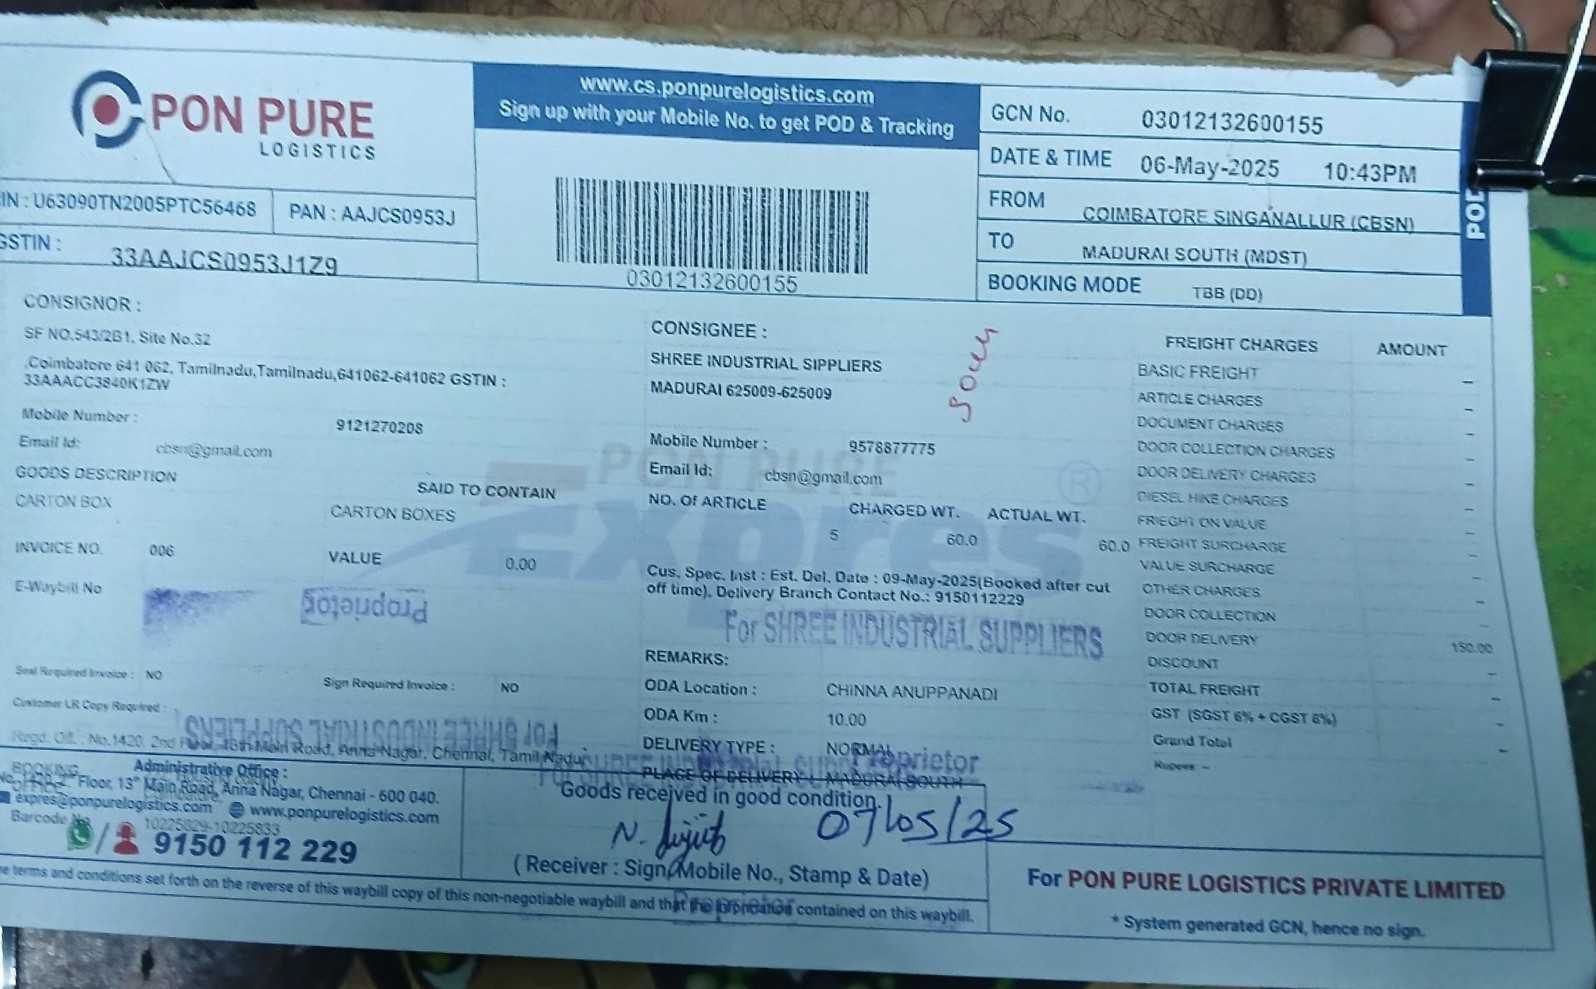 PON PURE
LOGISTICS
www.cs.ponpurelogistics.com
Sign up with your Mobile No. to get POD & Tracking
03012132600155
GCN No. 03012132600155
DATE & TIME 06-May-2025 10:43PM
FROM COIMBATORE SINGANALLUR (CBSN)
TO MADURAI SOUTH (MDST)
BOOKING MODE TBB (DD)
POD
IN : U63090TN2005PTC56468 PAN : AAJCS0953J
GSTIN : 33AAJCS0953J1Z9
CONSIGNOR :
SF NO.543/2B1, Site No.32
,Coimbatore 641 062, Tamilnadu,Tamilnadu,641062-641062 GSTIN :
33AAACC3840K1ZW
Mobile Number : 9121270208
Email Id: cbsn@gmail.com
GOODS DESCRIPTION SAID TO CONTAIN
CARTON BOX CARTON BOXES
INVOICE NO. 006 VALUE 0.00
E-Waybill No
Proprietor
Seal Required Invoice : NO Sign Required Invoice : NO
Customer LR Copy Required :
For SHREE INDUSTRIAL SUPPLIERS
CONSIGNEE :
SHREE INDUSTRIAL SIPPLIERS
MADURAI 625009-625009
Mobile Number : 9578877775
Email Id: cbsn@gmail.com
NO. Of ARTICLE CHARGED WT. ACTUAL WT.
5 60.0 60.0
PON PURE
Expres
®
Cus. Spec. Inst : Est. Del. Date : 09-May-2025(Booked after cut
off time), Delivery Branch Contact No.: 9150112229
For SHREE INDUSTRIAL SUPPLIERS
REMARKS:
ODA Location : CHINNA ANUPPANADI
ODA Km : 10.00
DELIVERY TYPE : NORMAL
Proprietor
PLACE OF DELIVERY : MADURAI SOUTH
FREIGHT CHARGES AMOUNT
BASIC FREIGHT –
ARTICLE CHARGES –
DOCUMENT CHARGES –
DOOR COLLECTION CHARGES –
DOOR DELIVERY CHARGES –
DIESEL HIKE CHARGES –
FRIEGHT ON VALUE –
FREIGHT SURCHARGE –
VALUE SURCHARGE –
OTHER CHARGES –
DOOR COLLECTION –
DOOR DELIVERY 150.00
DISCOUNT –
TOTAL FREIGHT –
GST (SGST 6% + CGST 6%) –
Grand Total –
Rupees –
Regd. Off. : No.1420, 2nd Floor, 13th Main Road, Anna Nagar, Chennai, Tamil Nadu
Administrative Office :
Floor, 13th Main Road, Anna Nagar, Chennai - 600 040.
expres@ponpurelogistics.com www.ponpurelogistics.com
Barcode No 10225829-10225833
/ 9150 112 229
Goods received in good condition.
07/05/25
( Receiver : Sign, Mobile No., Stamp & Date)
For PON PURE LOGISTICS PRIVATE LIMITED
* System generated GCN, hence no sign.
e terms and conditions set forth on the reverse of this waybill copy of this non-negotiable waybill and that the information contained on this waybill.